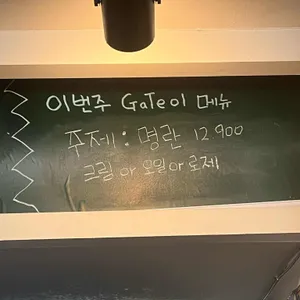 이번주 GaTeol 메뉴
주제 : 명란 12.900
크림 or 오일 or 로제